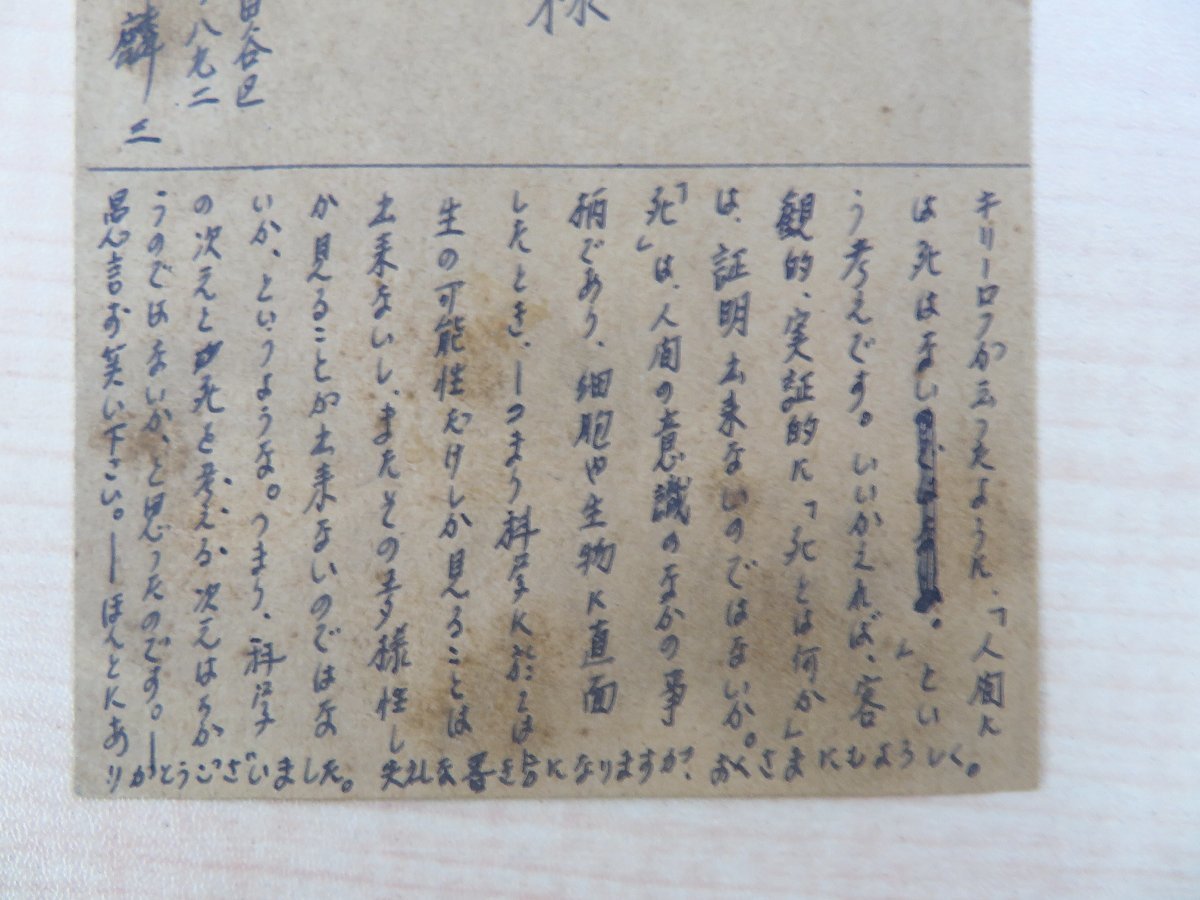 様
田谷区
八九二
麟三
キリーロフが云つたように、「人間に
は死はない。」とい
う考えです。いいかえれば、客
観的、実証的に「死とは何か」
は、証明出来ないのではないか。
「死」は、人間の意識のなかの事
柄であり、細胞や生物に直面
したとき、―つまり科学に於ては
生の可能性だけしか見ることは
出来ないし、またその多様性し
か見ることが出来ないのではな
いか、というような。つまり、科学
の次元と死と考える次元はちが
うのではないか、と思つたのです。―
愚言お笑い下さい。―ほんとにあ
りがとうございました。失礼な書き方になりますが、おくさまにもよろしく。